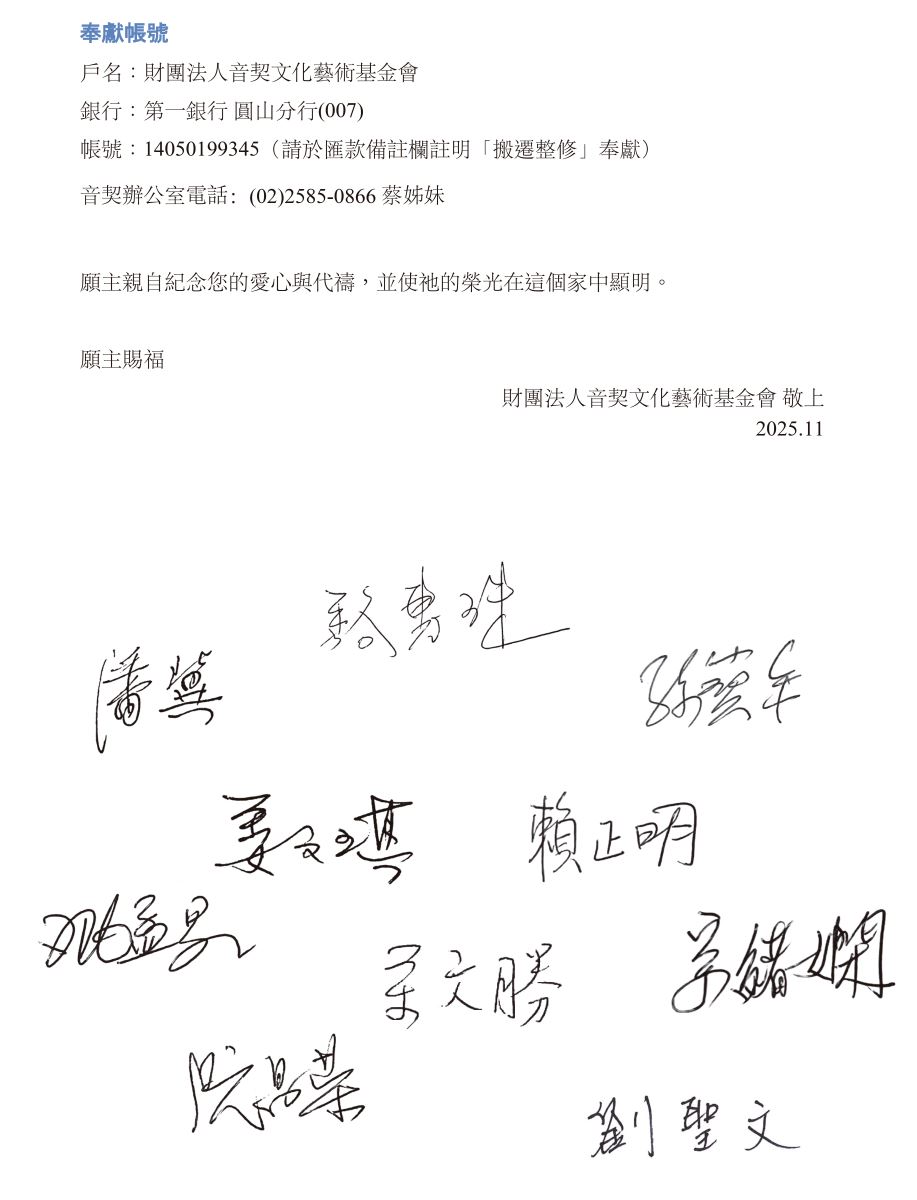 奉獻帳號
戶名：財團法人音契文化藝術基金會
銀行：第一銀行 圓山分行(007)
帳號：14050199345（請於匯款備註欄註明「搬遷整修」奉獻）
音契辦公室電話: (02)2585-0866 蔡姊妹
願主親自紀念您的愛心與代禱，並使祂的榮光在這個家中顯明。
願主賜福
財團法人音契文化藝術基金會 敬上
2025.11
潘冀
賴正明
文勝
劉聖文